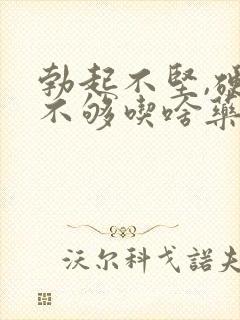 勃起不坚,硬
不够喫啥藥
沃尔科戈諾夫